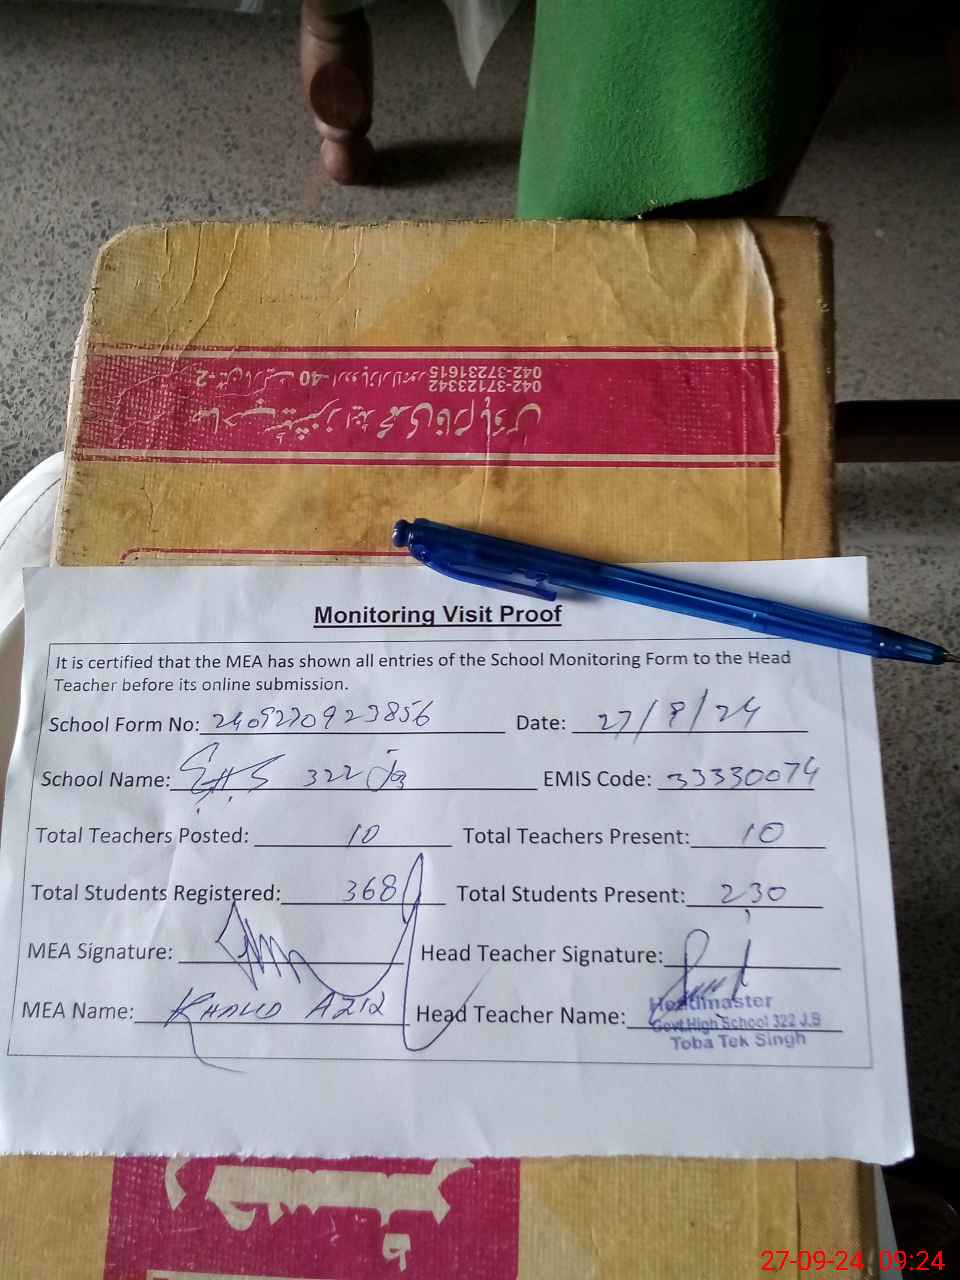 042-37231615
042-37123342
Monitoring Visit Proof
It is certified that the MEA has shown all entries of the School Monitoring Form to the Head
Teacher before its online submission.
School Form No: 2409270923856 Date: 27/9/24
School Name: GHS 322 JB EMIS Code: 33330074
Total Teachers Posted: 10 Total Teachers Present: 10
Total Students Registered: 368 Total Students Present: 230
MEA Signature: Head Teacher Signature:
MEA Name: KHALID AZIZ Head Teacher Name:
Headmaster
Govt.High School 322 J.B
Toba Tek Singh
27-09-24 09:24